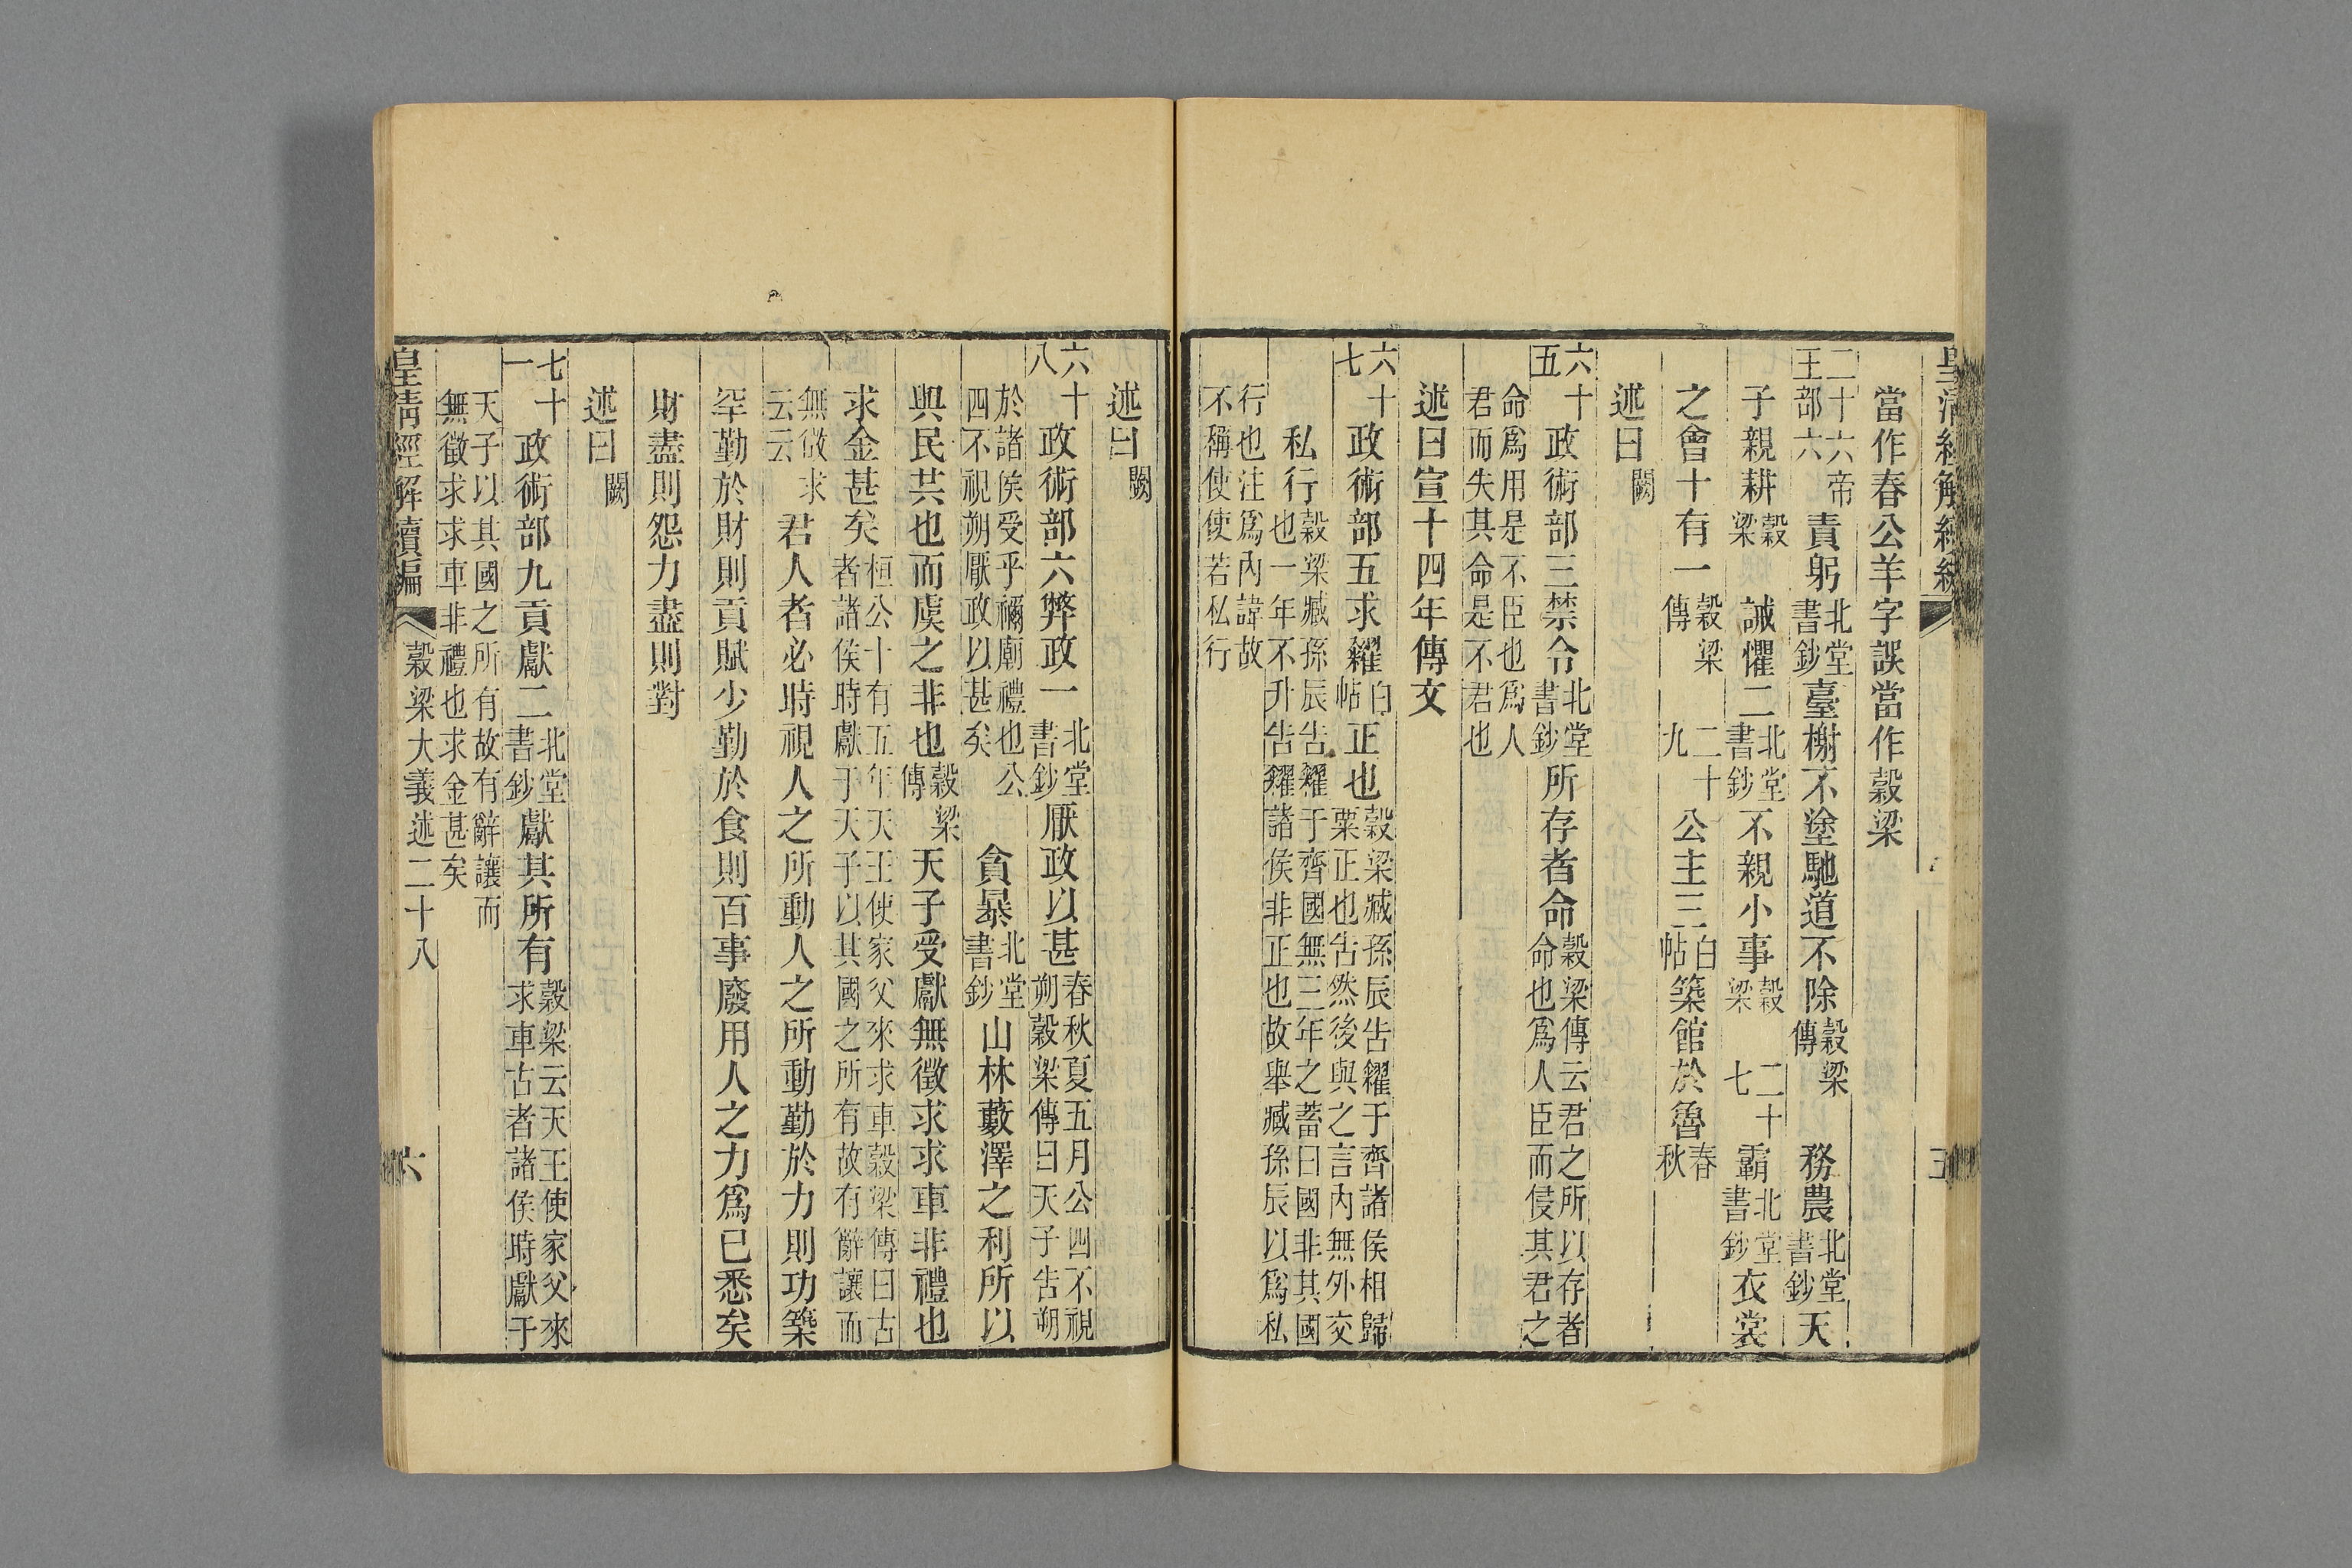 皇清經解續編
當作春公羊字誤當作穀梁
二十六帝王部六責躬北堂書鈔臺榭不塗馳道不除穀梁傳務農北堂書鈔天
子親耕穀梁誡懼二北堂書鈔不親小事穀梁二十七霸北堂書鈔衣裳
之會十有一穀梁傳二十九公主三白帖築館於魯春秋
述曰闕
六十五政術部三禁令北堂書鈔所存者命穀梁傳云君之所以存者命也爲人臣而侵其君之
命爲用是不臣也爲人君而失其命是不君也
述曰宣十四年傳文
六十七政術部五求糴白帖正也穀梁臧孫辰告糴于齊諸侯相歸粟正也告然後與之言內無外交
私行也穀梁臧孫辰告糴于齊國無三年之蓄曰國非其國也一年不升告糴諸侯非正也故舉臧孫辰以爲私
行也注爲內諱故不稱使使若私行
述曰闕
六十八政術部六弊政一北堂書鈔厭政以甚春秋夏五月公四不視朔穀梁傳曰天子告朔
於諸侯受乎禰廟禮也公四不視朔厭政以甚矣貪暴北堂書鈔山林藪澤之利所以
與民共也而虞之非也穀梁傳天子受獻無徵求求車非禮也
求金甚矣桓公十有五年天王使家父來求車穀梁傳曰古者諸侯時獻于天子以其國之所有故有辭讓而
無徵求云云君人者必時視人之所動人之所動勤於力則功築
罕勤於財則貢賦少勤於食則百事廢用人之力爲已悉矣
財盡則怨力盡則對
述曰闕
七十一政術部九貢獻二北堂書鈔獻其所有穀梁云天王使家父來求車古者諸侯時獻于
天子以其國之所有故有辭讓而無徵求求車非禮也求金甚矣
皇清經解續編 穀梁大義述二十八 六